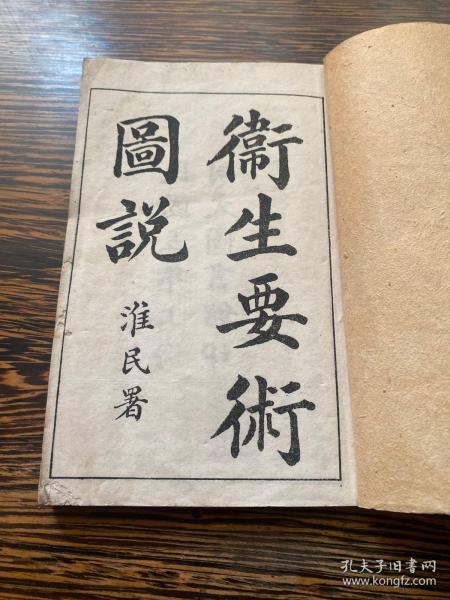 衞生要術
圖説
淮民署
孔夫子旧书网
www.kongfz.com